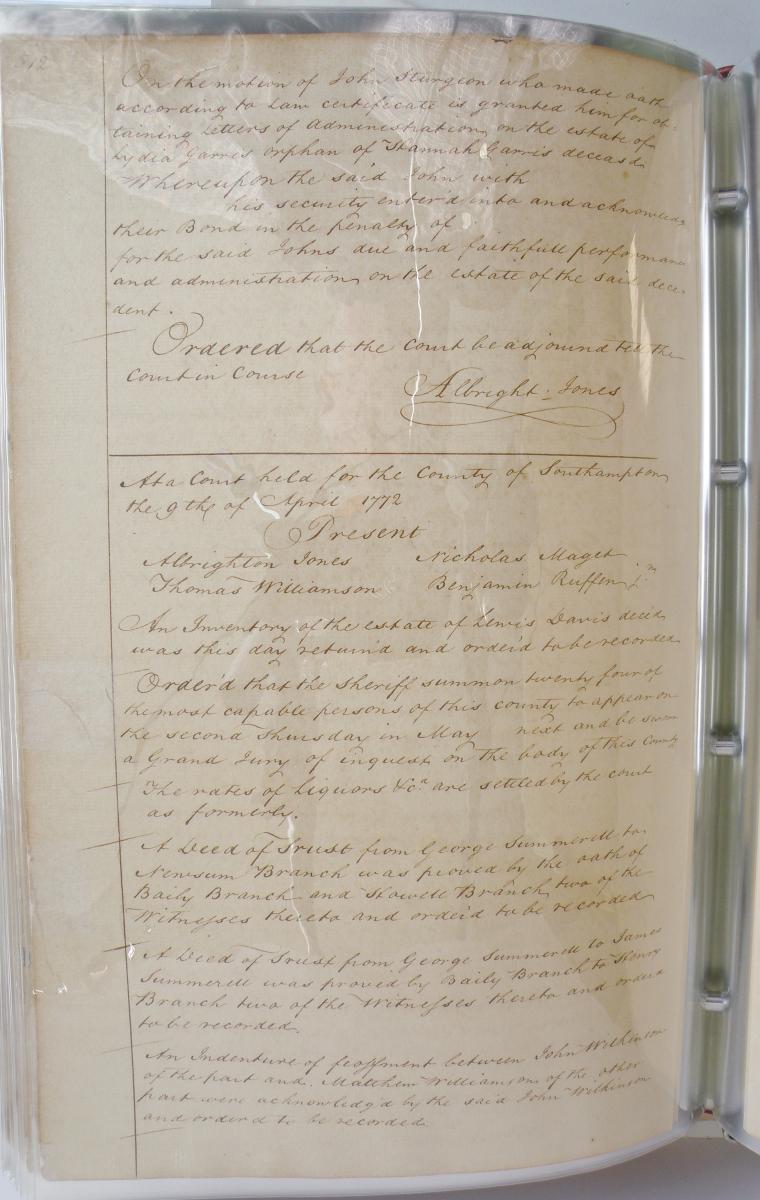 512
On the motion of John Sturgeon who made oath
according to Law certificate is granted him for ob-
taining Letters of Administration on the estate of
Lydia Garris orphan of Hannah Garris deceas'd
Whereupon the said John with
his security enter'd into and acknowledg
their Bond in the penalty of
for the said Johns due and faithfull performance
and administration on the estate of the said dece-
dent.
Ordered that the Court be adjournd till the
Court in Course
Albright. Jones
At a Court held for the County of Southampton
the 9th of April 1772
Present
Albrighton Jones Nicholas Maget
Thomas Williamson Benjamin Ruffin jr
An Inventory of the estate of Lewis Davis decd
was this day return'd and order'd to be recorded
Order'd that the Sheriff summon twenty four of
the most capable persons of this county to appear on
the second Thursday in May next and be sworn
a Grand Jury of inquest on the body of this County
The rates of Liquors &ca are settled by the court
as formerly.
A Deed of Trust from George Summerell to
Newsum Branch was proved by the oath of
Baily Branch and Howell Branch two of the
Witnesses thereto and order'd to be recorded
A Deed of Trust from George Summerell to James
Summerell was proved by Baily Branch to Henry
Branch two of the Witnesses thereto and orderd
to be recorded.
An Indenture of feoffment between John Wilkinson
of the part and Matthew Williamson of the other
part were acknowledg'd by the said John Wilkinson
and order'd to be recorded.